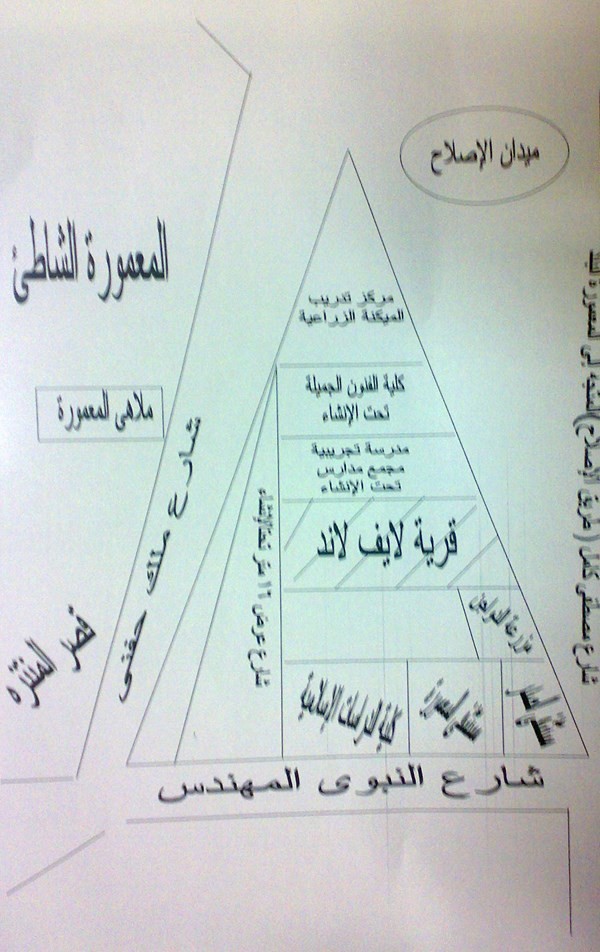 ميدان الإصلاح
المعمورة الشاطئ
مركز تدريب
الميكنة الزراعية
كلية الفنون الجميلة
تحت الإنشاء
ملاهى المعمورة
مدرسة تجريبية
مجمع مدارس
تحت الإنشاء
شارع ملك حفنى
قرية لايف لاند
شارع عرض ١٦ متر تحت الإنشاء
شارع مصطفى كامل ( طريق الإصلاح
قصر المنتزه
كلية الدراسات الإسلامية
مستشفى المعمورة
شارع النبوى المهندس